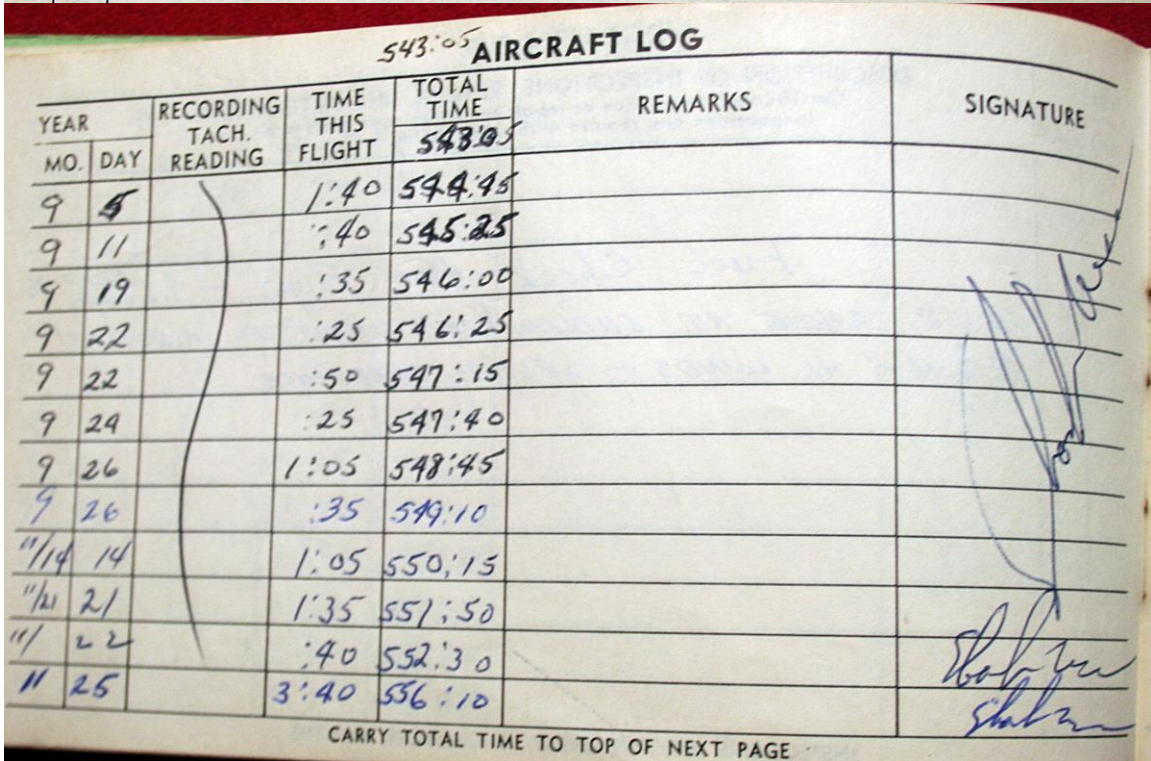 543:05 AIRCRAFT LOG
YEAR RECORDING TACH. READING TIME THIS FLIGHT TOTAL TIME REMARKS SIGNATURE
MO. DAY 543:05
9 5 1:40 544:45
9 11 :40 545:25
9 19 :35 546:00
9 22 :25 546:25
9 22 :50 547:15
9 24 :25 547:40
9 26 1:05 548:45
9 26 :35 549:10
11/14 14 1:05 550:15
11/21 21 1:35 551:50
11/ 22 :40 552:30
11 25 3:40 556:10
CARRY TOTAL TIME TO TOP OF NEXT PAGE